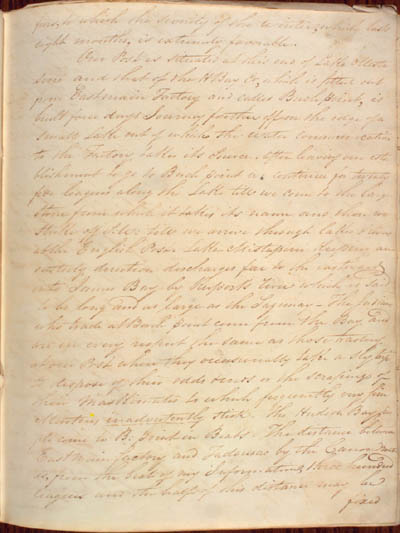 furs, to which the severity of the winter, which lasts
eight months, is extremely favorable.
Our Post is situated at this end of Lake
and that of the H Bay Co, which is fitted out
from Eastmain Factory and called Birch Point, is
built four days Journey further off on the edge of a
small Lake out of which the water communication
to the Factory takes its source. After leaving our esta
blishment to go to Birch point we continue for twenty
five leagues along the Lake till we come to the large
Stone from which it takes its name and then we
till we arrive through lakes &
at the English Post. Lake Mistassini keeping an
direction discharges far to the eastward
into James Bay by Ruperts River which is said
to be long and as large as the Saguenay – The Indians
who trade at Birch point come from the Bay and
are in every respect the same as those trading
at our Post where they occasionally take a
to dispose of their odds & ends or the scrapings of
their to which frequently very fine
Martins inadvertently stick. The Hudson Bay peo
ple come to B. Point in Boats. The distance between
East Main factory and Tadousac by the Canoe route
is, from the best of my information, three hundred
leagues and the half of this distance may be
fixed